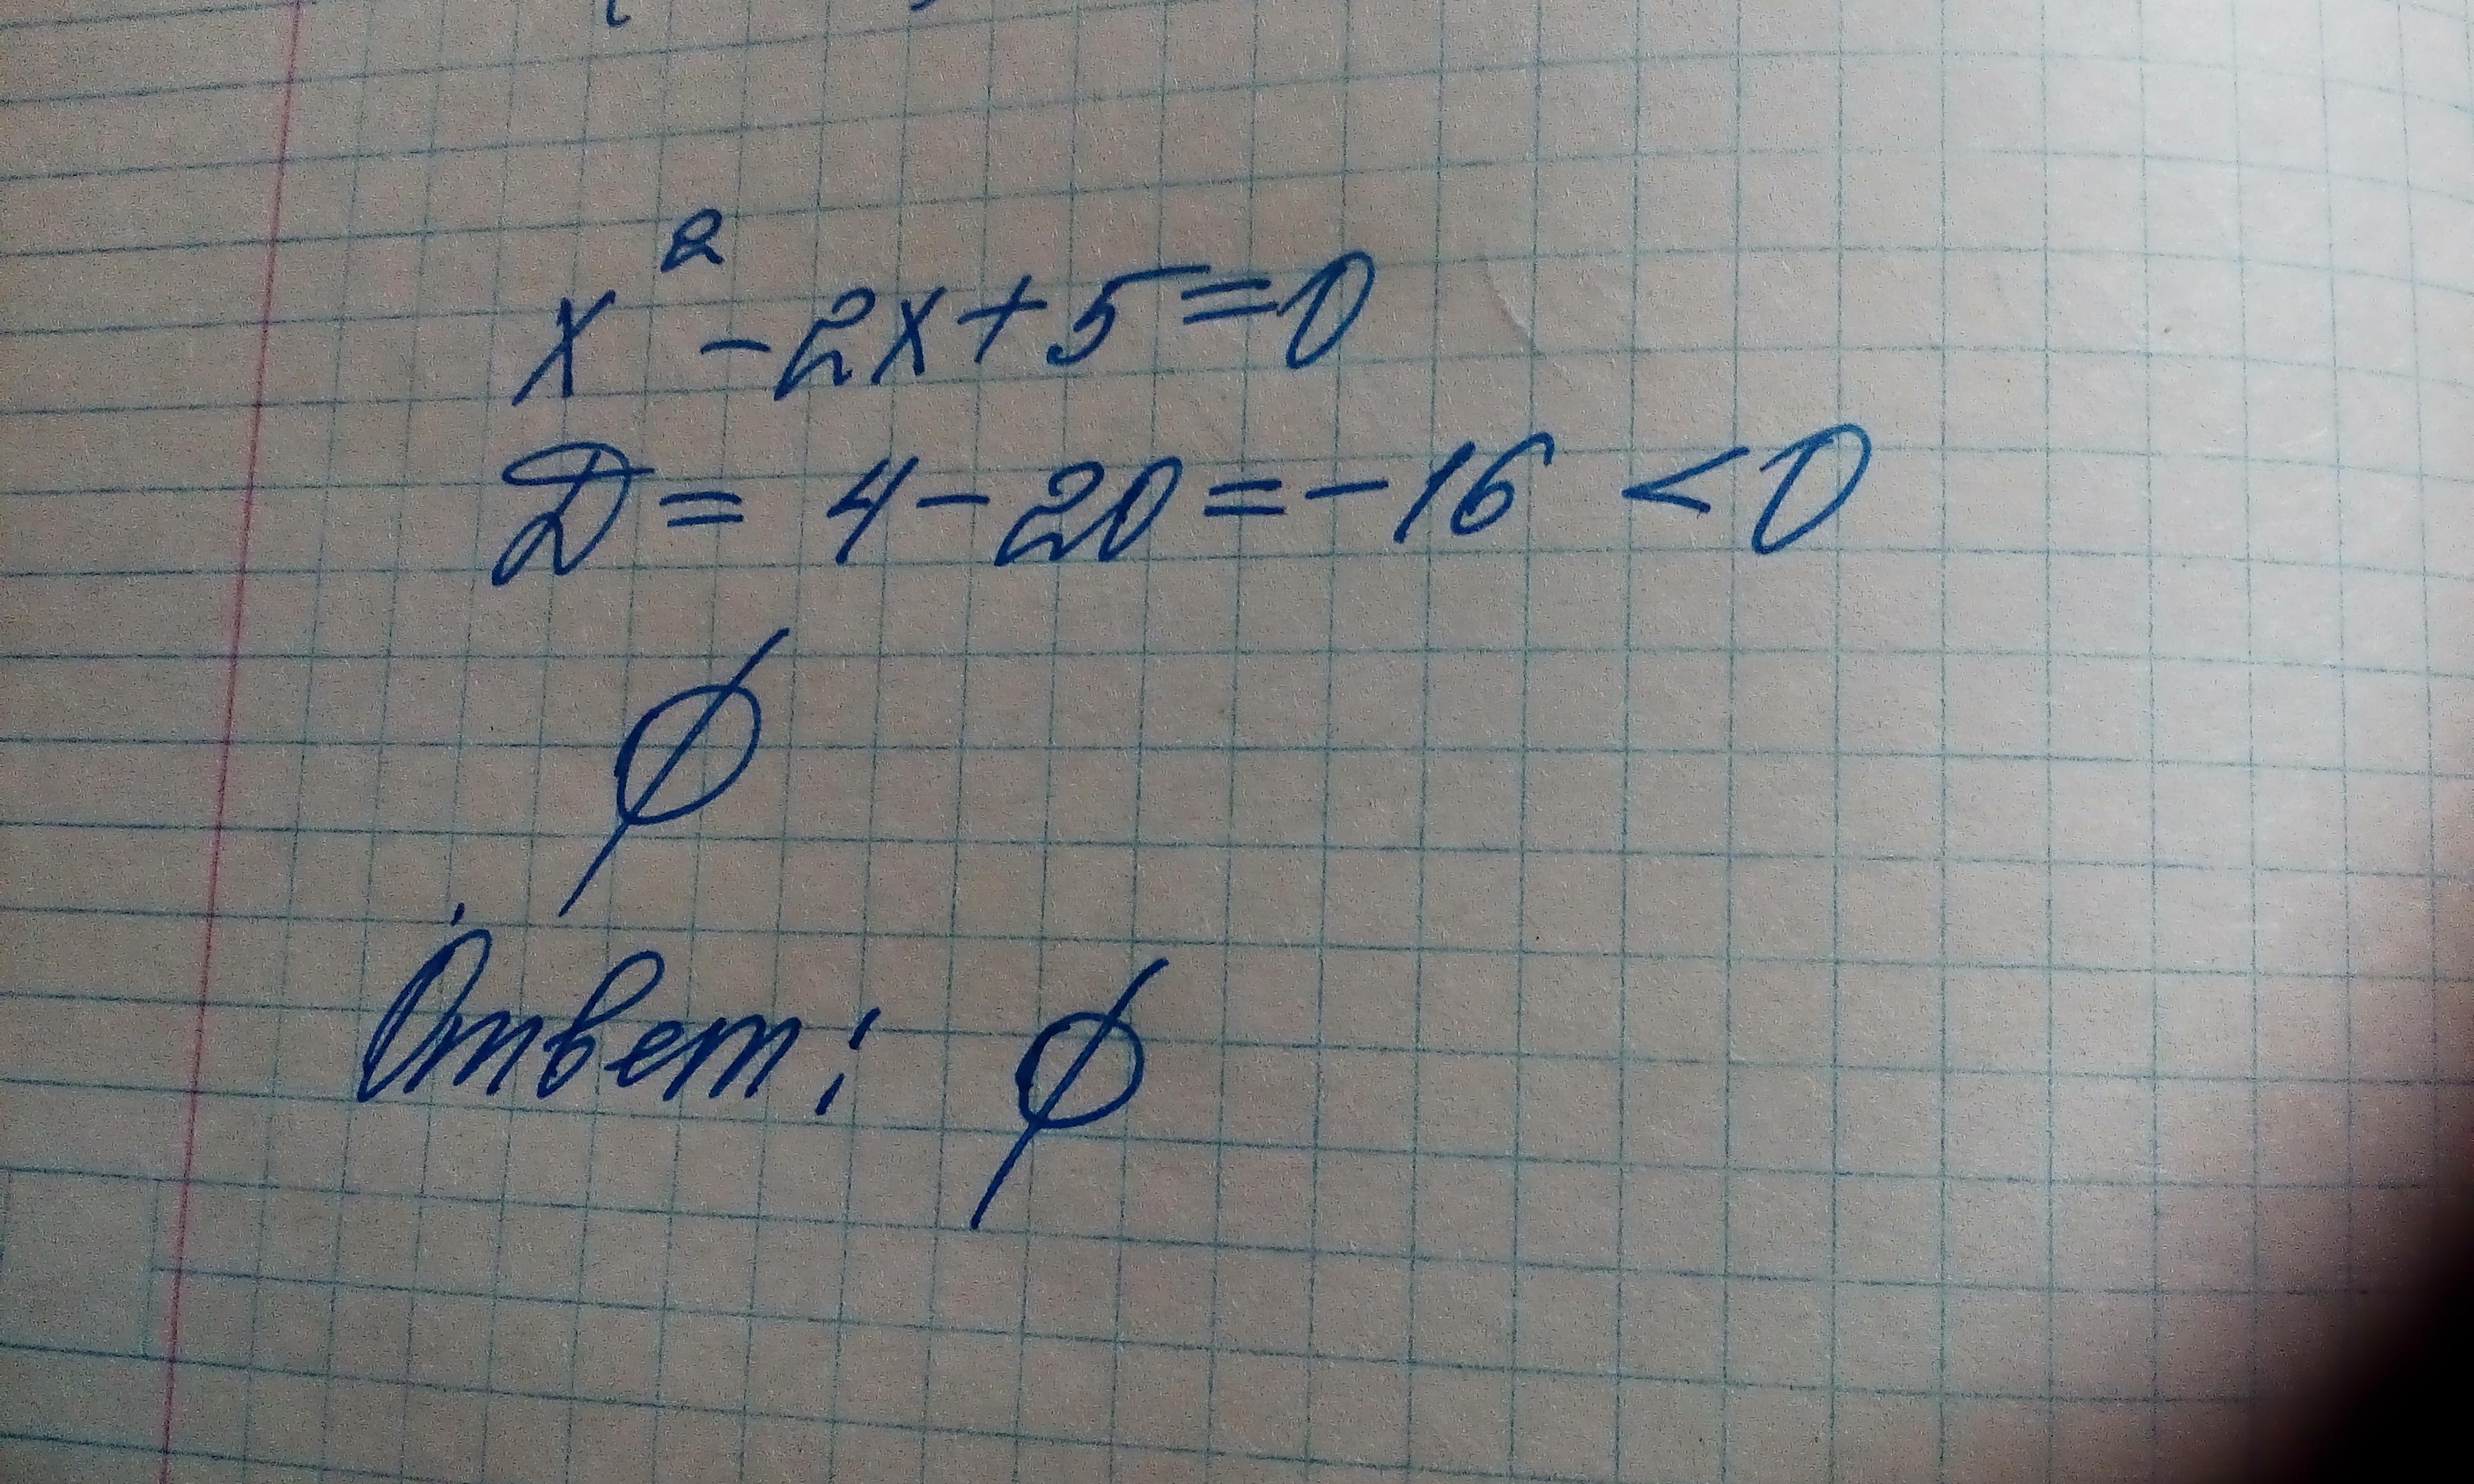 x² - 2x + 5 = 0
D = 4 - 20 = -16 < 0
∅
Ответ: ∅